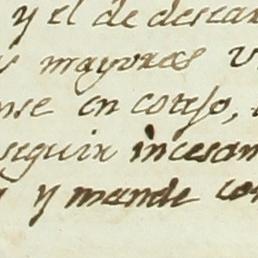 y el de descar
s mayores v
nse en cotejo,
seguir incesan
y mande con